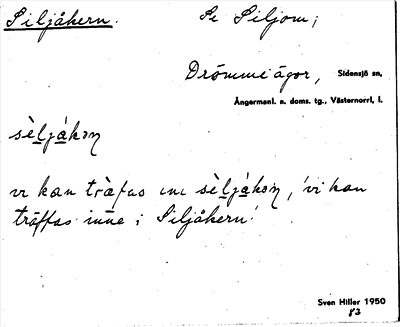 Siljåkern. Se Siljom;
Drömmeägor, Sidensjö sn,
Ångermanl. n. doms. tg., Västernorrl. l.
sèljåkɔn
vi kan tràfas inne sèljåkɔn, 'vi kan
träffas inne i Siljåkern'.
Sven Hiller 1950
83